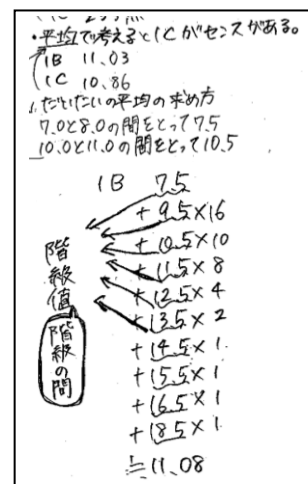 ・平均で考えると1Cがセンスがある。
1B 11.03
1C 10.86
だいたいの平均の求め方
7.0と8.0の間をとって7.5
10.0と11.0の間をとって10.5
1B 7.5
+9.5×16
+10.5×10
+11.5×8
+12.5×4
+13.5×2
+14.5×1
+15.5×1
+16.5×1
+18.5×1
≒11.08
階級値
階級の間